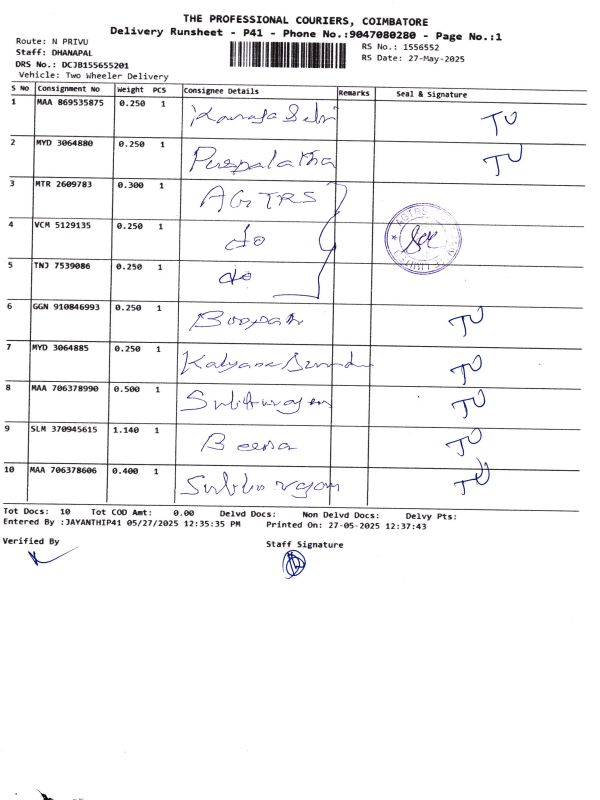 THE PROFESSIONAL COURIERS, COIMBATORE
Delivery Runsheet - P41 - Phone No.:9047080280 - Page No.:1
Route: N PRIVU
RS No.: 1556552
Staff: DHANAPAL
RS Date: 27-May-2025
DRS No.: DCJB155655201
Vehicle: Two Wheeler Delivery
S No Consignment No Weight PCS Consignee Details Remarks Seal & Signature
1 MAA 869535875 0.250 1 TU
2 MYD 3064880 0.250 1 Puspalatha TU
3 MTR 2609783 0.300 1 AGTRS
4 VCM 5129135 0.250 1 do
5 TNJ 7539086 0.250 1 do
6 GGN 910846993 0.250 1 Boopathi TU
7 MYD 3064885 0.250 1 TU
8 MAA 706378990 0.500 1 TU
9 SLM 370945615 1.140 1 Beena TU
10 MAA 706378606 0.400 1 TU
Tot Docs: 10 Tot COD Amt: 0.00 Delvd Docs: Non Delvd Docs: Delvy Pts:
Entered By :JAYANTHIP41 05/27/2025 12:35:35 PM Printed On: 27-05-2025 12:37:43
Verified By
Staff Signature